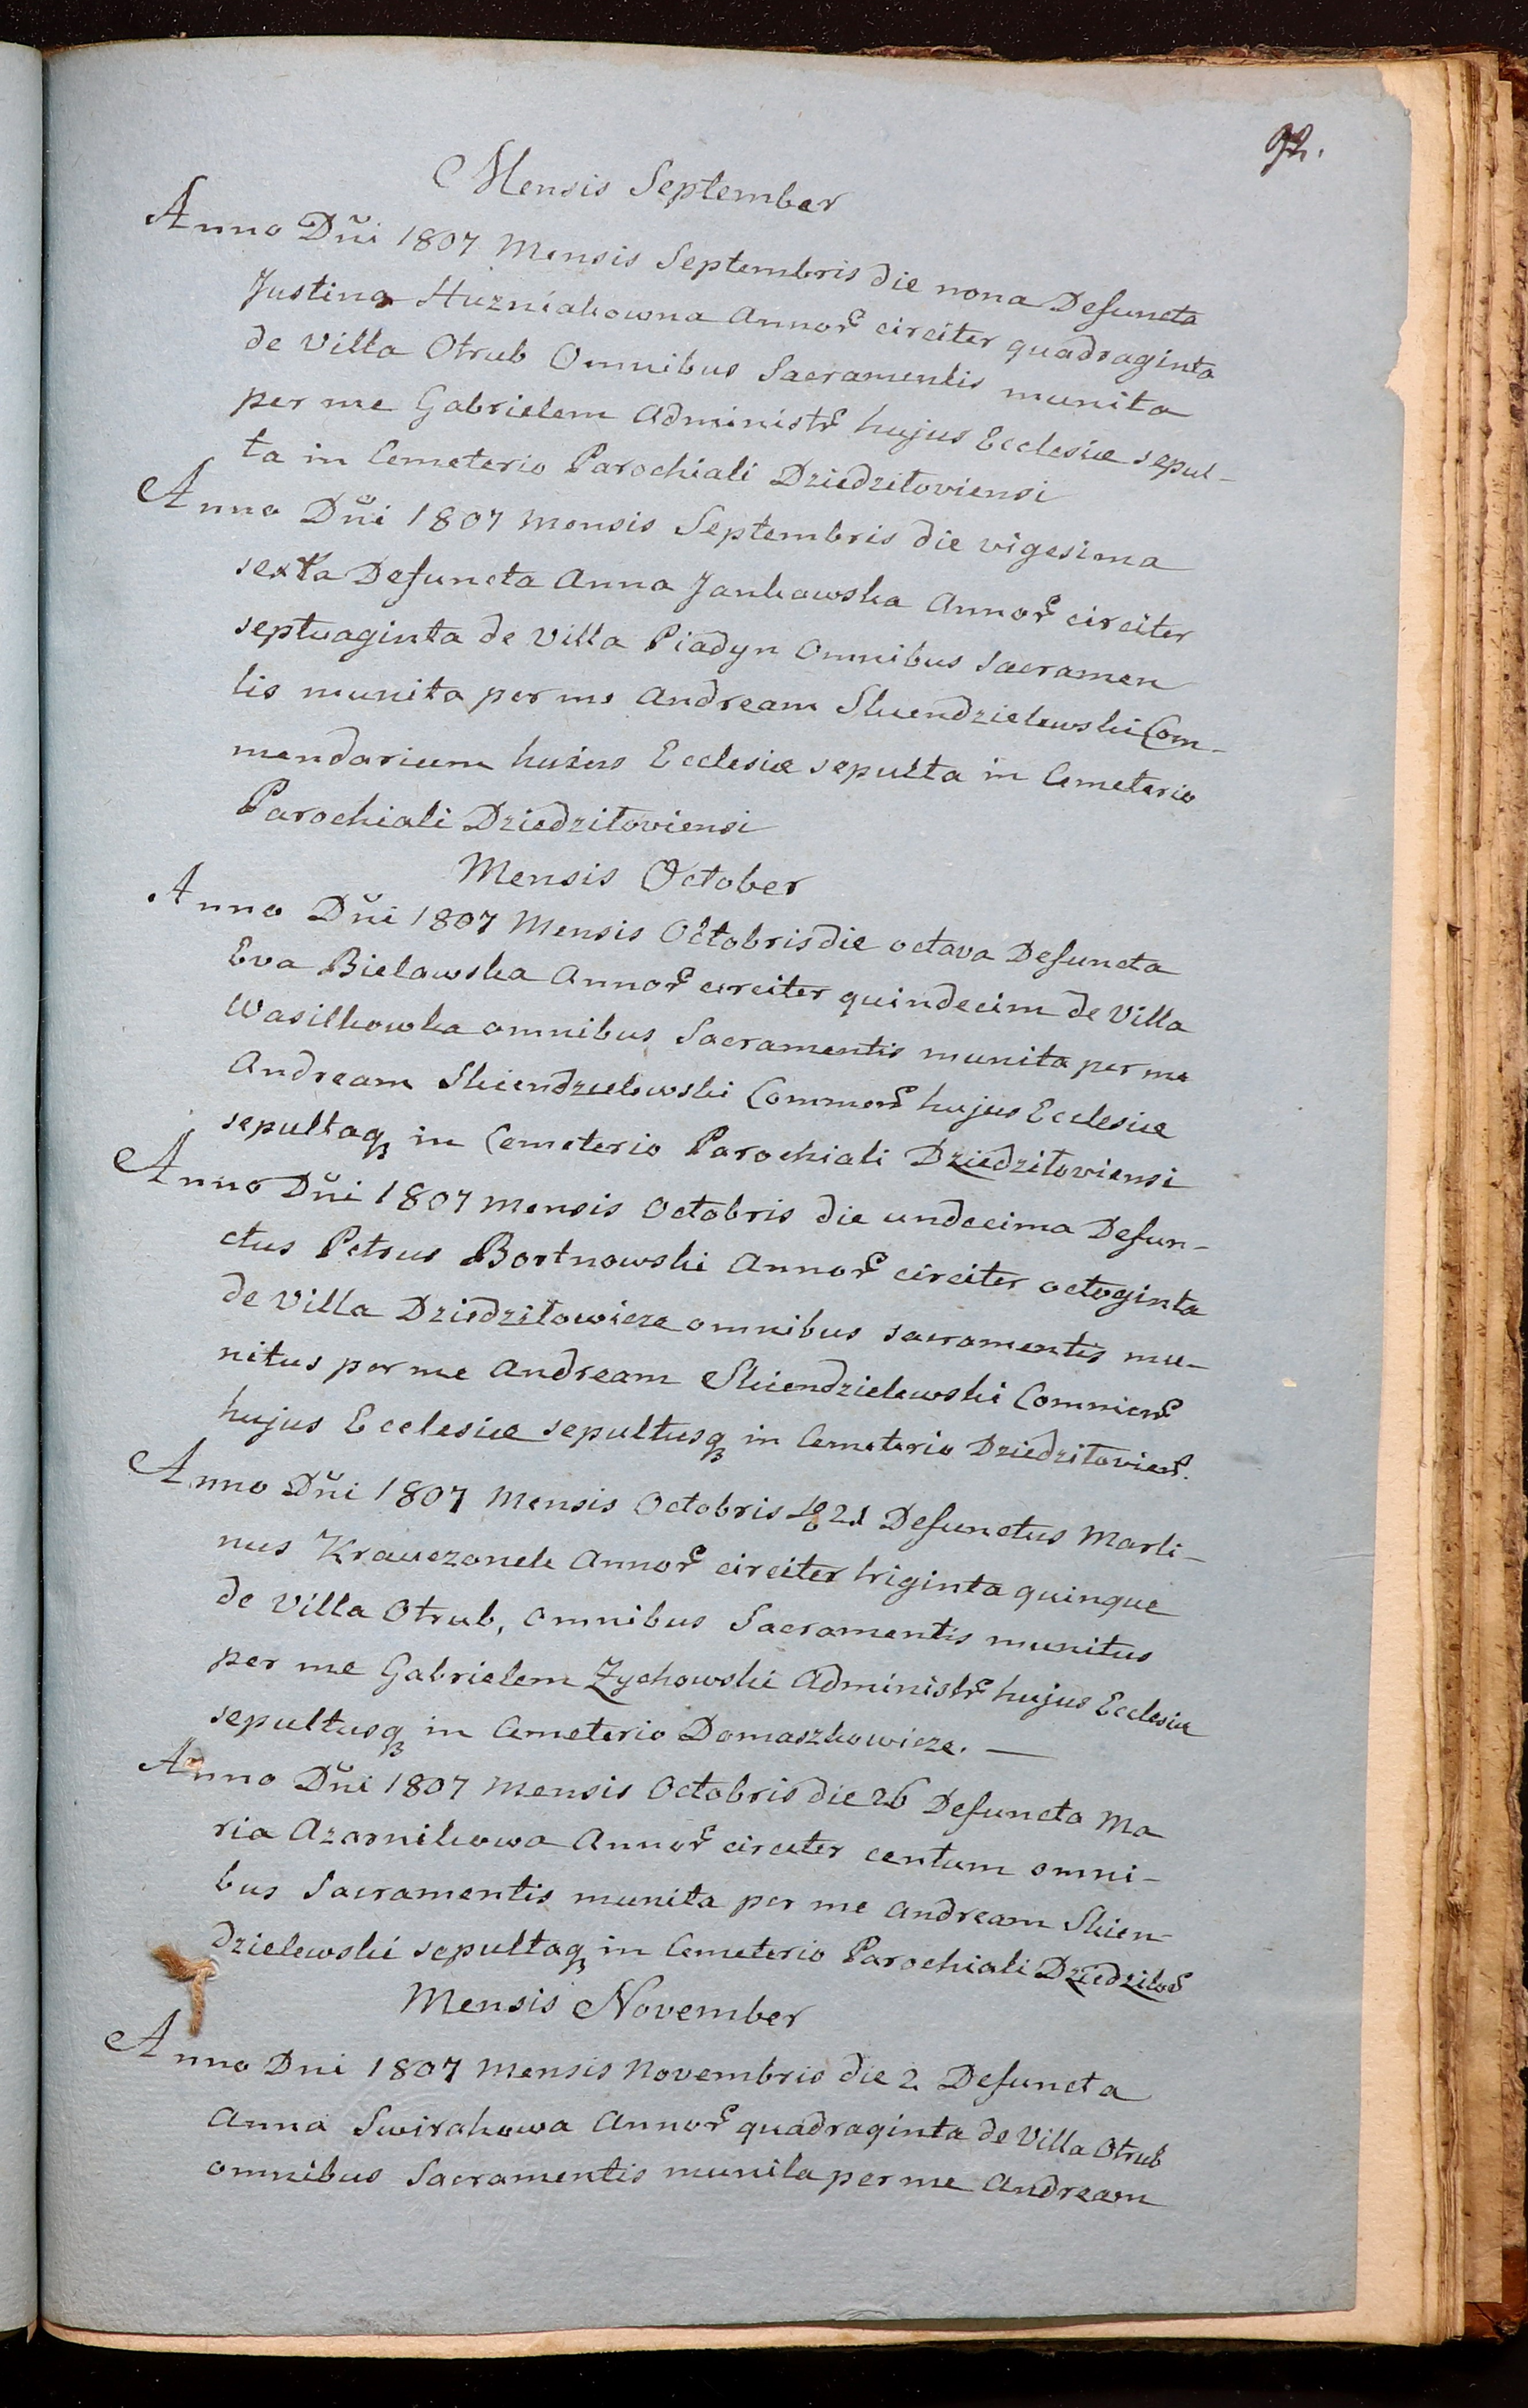 92.
Mensis September
Anno Dñi 1807 Mensis Septembris die nona Defuncta
Justina Huzniakowna Annor̃ circiter quadraginta
de Villa Otrub Omnibus Sacramentis munita
per me Gabrielem Administr̃ hujus Ecclesiæ sepul-
ta in Cemeterio Parochiali Dziedziłoviensi
Anno Dñi 1807 Mensis Septembris die vigesima
sexta Defuncta Anna Jankowska Annor̃ circiter
septuaginta de Villa Piadyn Omnibus Sacramen
tis munita per me Andream Skiendzielewski Com-
mendarium huius Ecclesiæ sepulta in Cemeterio
Parochiali Dziedziłoviensi
Mensis October
Anno Dñi 1807 Mensis Octobris die octava Defuncta
Eva Bielawska Annor̃ circiter quindecim de Villa
Wasilkowka omnibus Sacramentis munita per me
Andream Skiendzielewski Commeñ hujus Ecclesiæ
sepultaq₃ in Cemeterio Parochiali Dziedziłoviensi
Anno Dñi 1807 Mensis Octobris die undecima Defun-
ctus Petrus Bortnowski Annor̃ circiter octoginta
de Villa Dziedziłowicze omnibus sacramentis mu-
nitus per me Andream Skiendzielewski Commeñ
hujus Ecclesiæ sepultusq₃ in Cemeterio Dziedziłovieñ.
Anno Dñi 1807 Mensis Octobris 21 Defunctus Marti-
nus Krawczonek Annor̃ circiter triginta quinque
de Villa Otrub, omnibus Sacramentis munitus
per me Gabrielem Zychowski Administr̃ hujus Ecclesiæ
sepultusq₃ in Cemeterio Domaszkowicze. —
Anno Dñi 1807 Mensis Octobris die 26 Defuncta Ma
ria Azarnikowa Annor̃ circiter centum omni-
bus Sacramentis munita per me Andream Skien-
dzielewski sepultaq₃ in Cemeterio Parochiali Dziedziłoṽ
Mensis November
Anno Dni 1807 Mensis Novembris die 2 Defuncta
Anna Swirakowa Annor̃ quadraginta de Villa Otrub
omnibus Sacramentis munita per me Andream